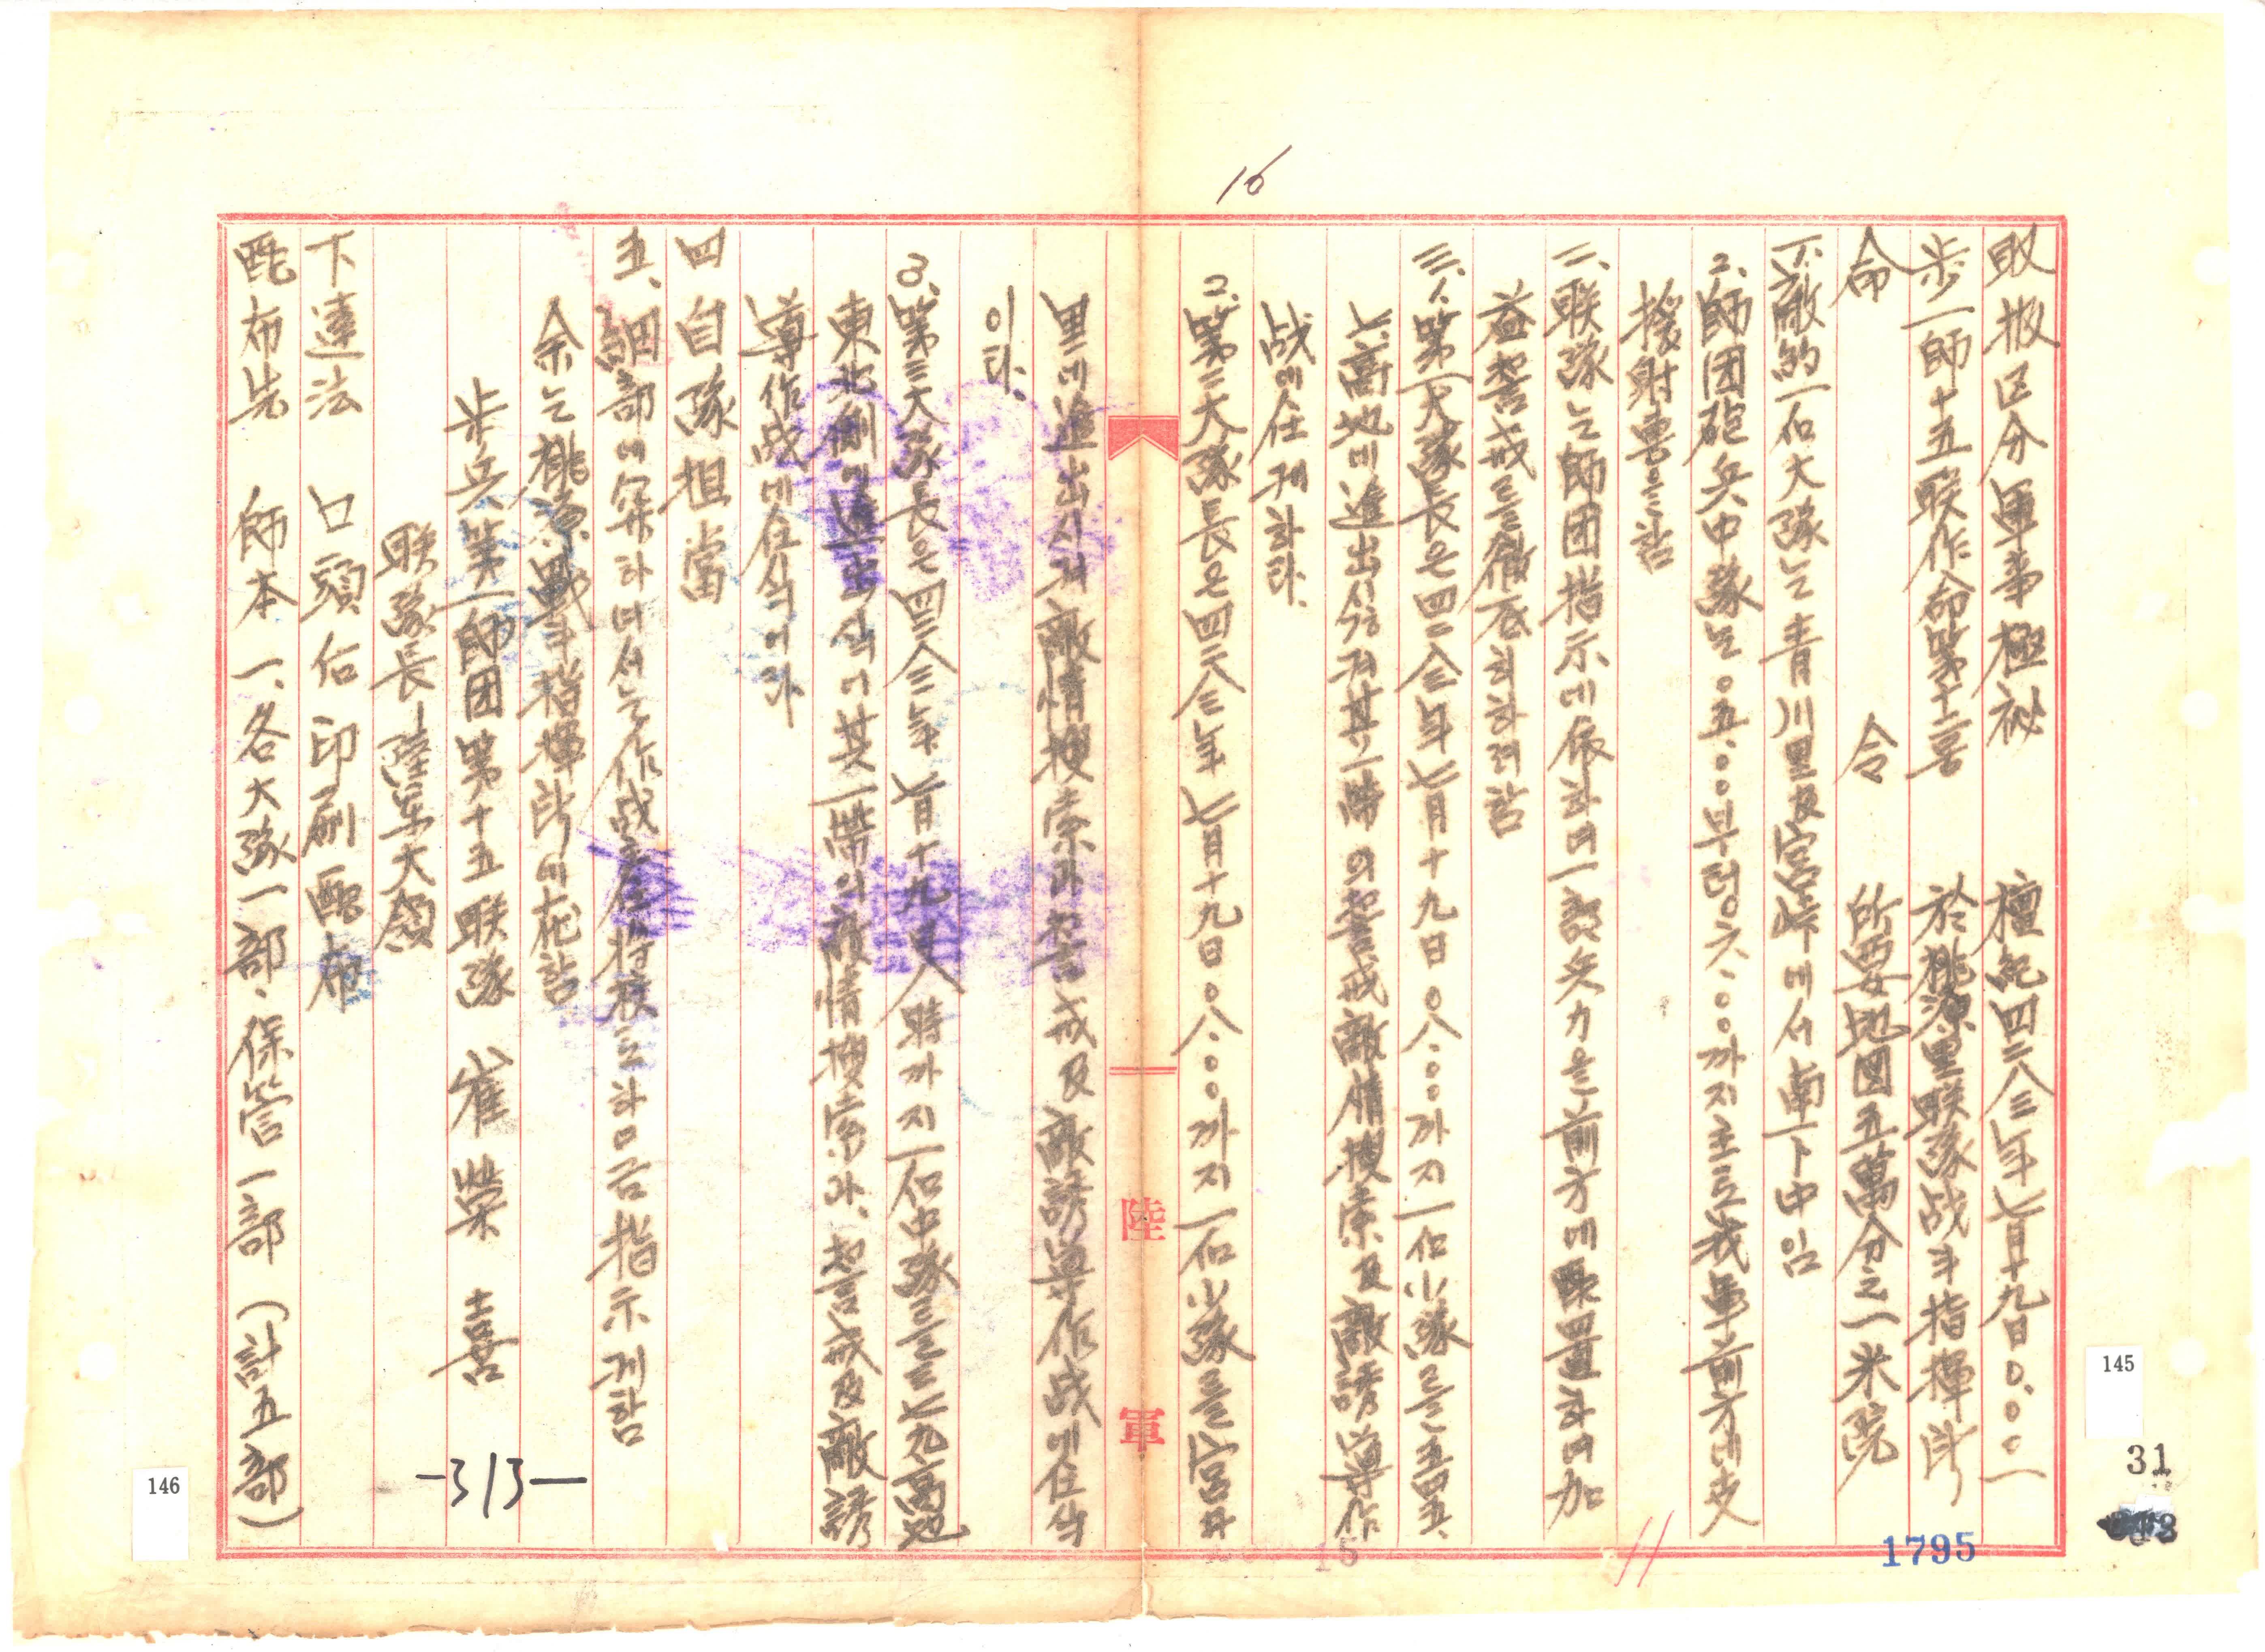 16
取扱区分 軍事極秘 檀紀四二八三年七月十九日0.00一
步一師十五联作命第十二号 於桃源里联隊战斗指揮所
命 令 所要地図五萬分之一 米院
一.1.敵約一石大隊는 青川里及宮峠에서 南下中임
2.師団砲兵中隊는 0五.00부터 0六.00까지 主로 我軍前方에 支
援射擊을 함
二.联隊는 師団指示에 依하여 一部兵力을 前方에 配置하며 加
益警戒를 徹底히 하려함
三.1.第一大隊長은 四二八三年七月十九日0八.00까지 一石小隊를 五四五.
七高地에 進出시켜 其一帶의 警戒 敵情搜索及 敵誘導作
战에 任케하라.
2.第二大隊長은 四二八三年七月十九日0八.00까지 一石小隊를 宮井
里에 進出시켜 敵情搜索과 警戒及 敵誘導作战에 任식
이라.
3.第三大隊長은 四二八三年七月十九日 八時까지 一石中隊를 三七九高地
東北側에 進出식여 其一帶의 敵情搜索과. 警戒及 敵誘
導作战에 任식이라
四 自隊担當
五.細部에 関하여서는 作战主任将校로 하여금 指示케함
余는 桃源 戰斗指揮所에 在함
步兵第一師団第十五联隊 崔榮喜
联隊長 陸軍大領
下達法 口頭后印刷配布
配布先 師本一.各大隊一部.保管一部(計五部)
陸軍
-313-
145
31
146
1795
15
11